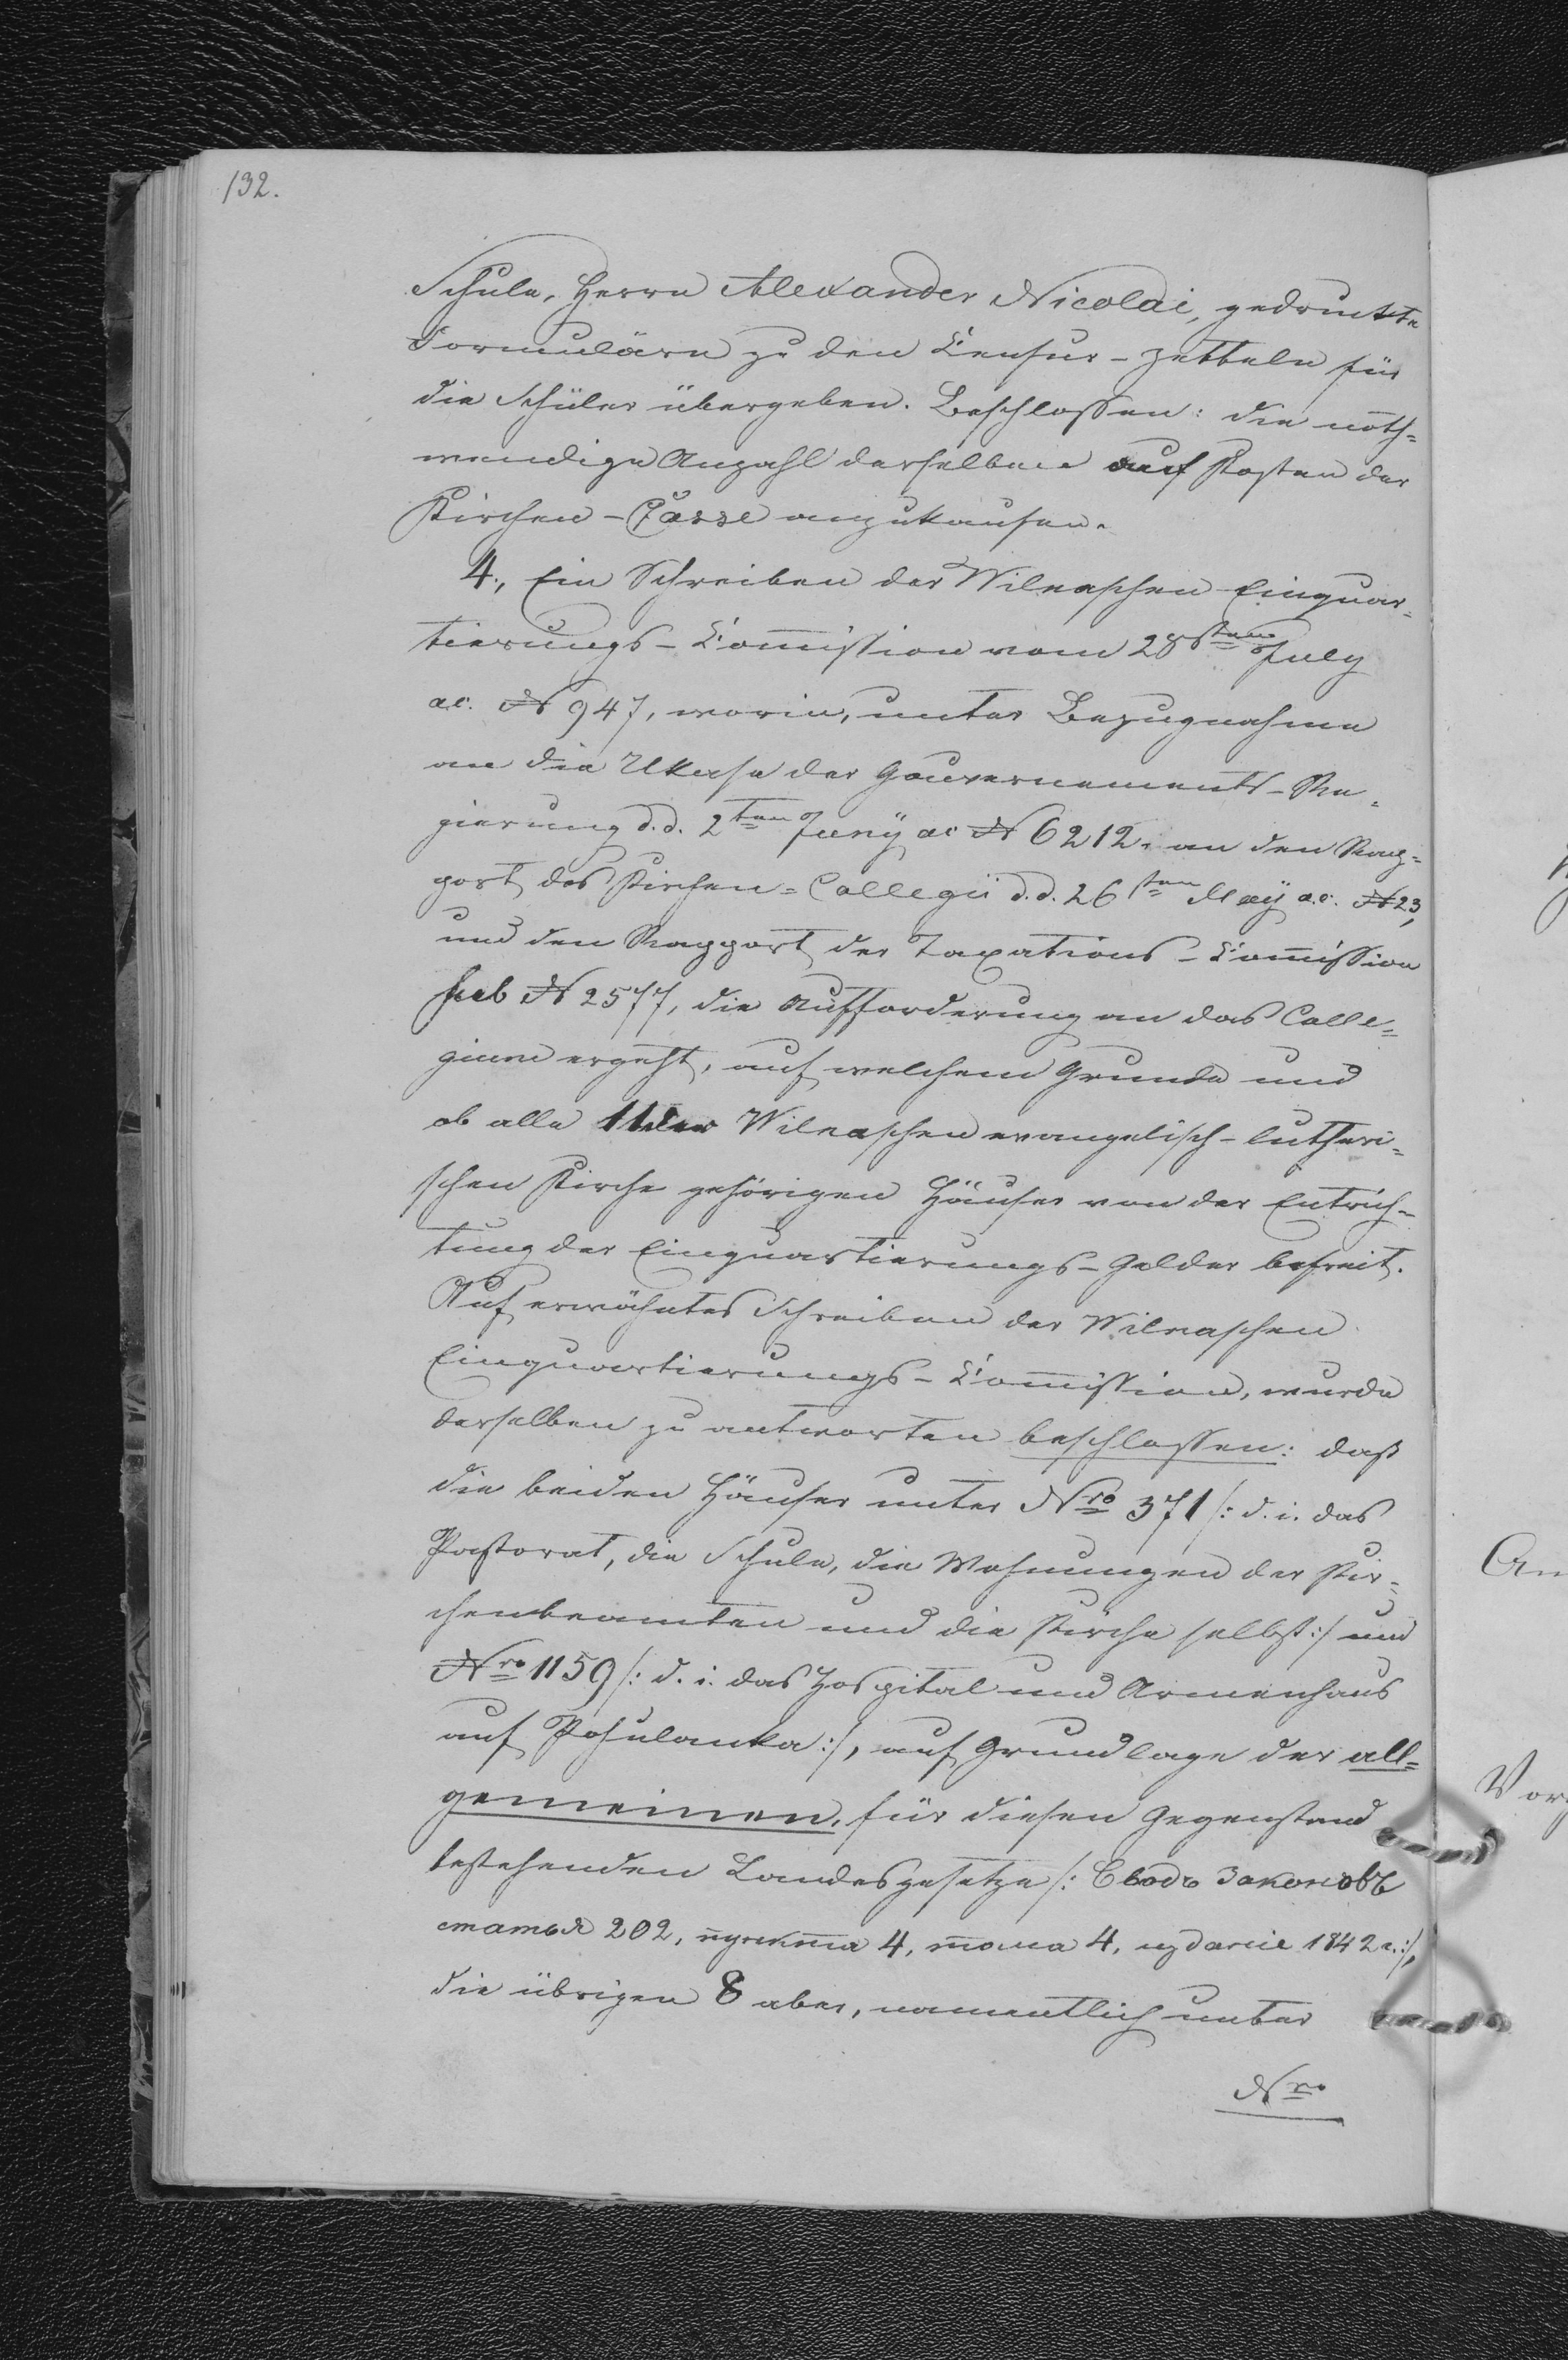 132.
Schule, Herrn Alexander Nicolai, gedruckte
Formuläre zu den Censur-Zetteln für
die Schüler übergeben. Beschlossen: die noth=
wendige Anzahl derselben auf Kosten der
Kirchen-Casse anzukaufen.
4., Ein Schreiben der Wilnaschen Einquar=
tierungs-Com̄ission vom 28sten July
a.c. № 947, worin, unter Bezugnahme
an die Ukase der Gouvernements-Re=
gierung d.d. 2ten Juny ac № 6212. an den Rap=
port des Kirchen=Collegii d.d. 26ten May a.c. № 23,
und den Rapport der Taxations-Com̄ission
sub № 2577, die Aufforderung an das Colle=
gium ergeht, auf welchem Grunde und
ob alle 11 der Wilnaschen evangelisch-lutheri=
schen Kirche gehörigen Häuser von der Entrich=
tung der Einquartierungs-Gelder befreit.
Auf erwähntes Schreiben der Wilnaschen
Einquartierungs-Com̄ission, wurde
derselben zu antworten beschlossen: daß
die beiden Häuser unter Nro 371 /: d. i. das
Pastorat, die Schule, die Wohnungen der Kir=
chenbeamten und die Kirche selbst :/ und
Nro 1159 /: d. i. das Hospital und Armenhaus
auf Pohulanka :/, auf Grundlage der all=
gemeinen, für diesen Gegenstand
bestehenden Landesgesetze /: Сводъ Законовъ
статья 202, пункта 4, тома 4, изданіе 1842 г. :/,
die übrigen 8 aber, namentlich unter
Nro
An
Vor